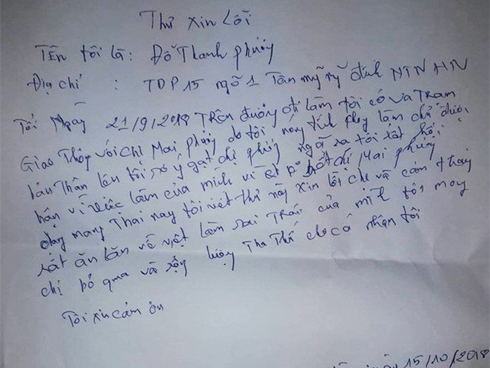 Thư xin Lỗi
Tên tôi là: Đỗ Thanh Phượng
Địa chỉ : TDP 15 ngõ 1 Tân mỹ mỹ đình NTN HN
Tối Ngày 21/9/2018 Trên đường đi làm tôi có va Trạm
Giao Thông với chị Mai Phương do tôi nóng tính không làm chủ được
bản Thân lên tôi sơ ý gạt chị Phương ngã ra tôi rất hối
hận vì việc làm của mình vì biết chị Mai Phương
đang mang Thai nay tôi viết thư này xin lỗi chị và cảm thấy
rất ăn năn về việc làm sai Trái của mình tôi mong
chị bỏ qua và rộng lượng Tha Thứ cho cá nhân tôi
Tôi xin cảm ơn
ngày 15/10/2018